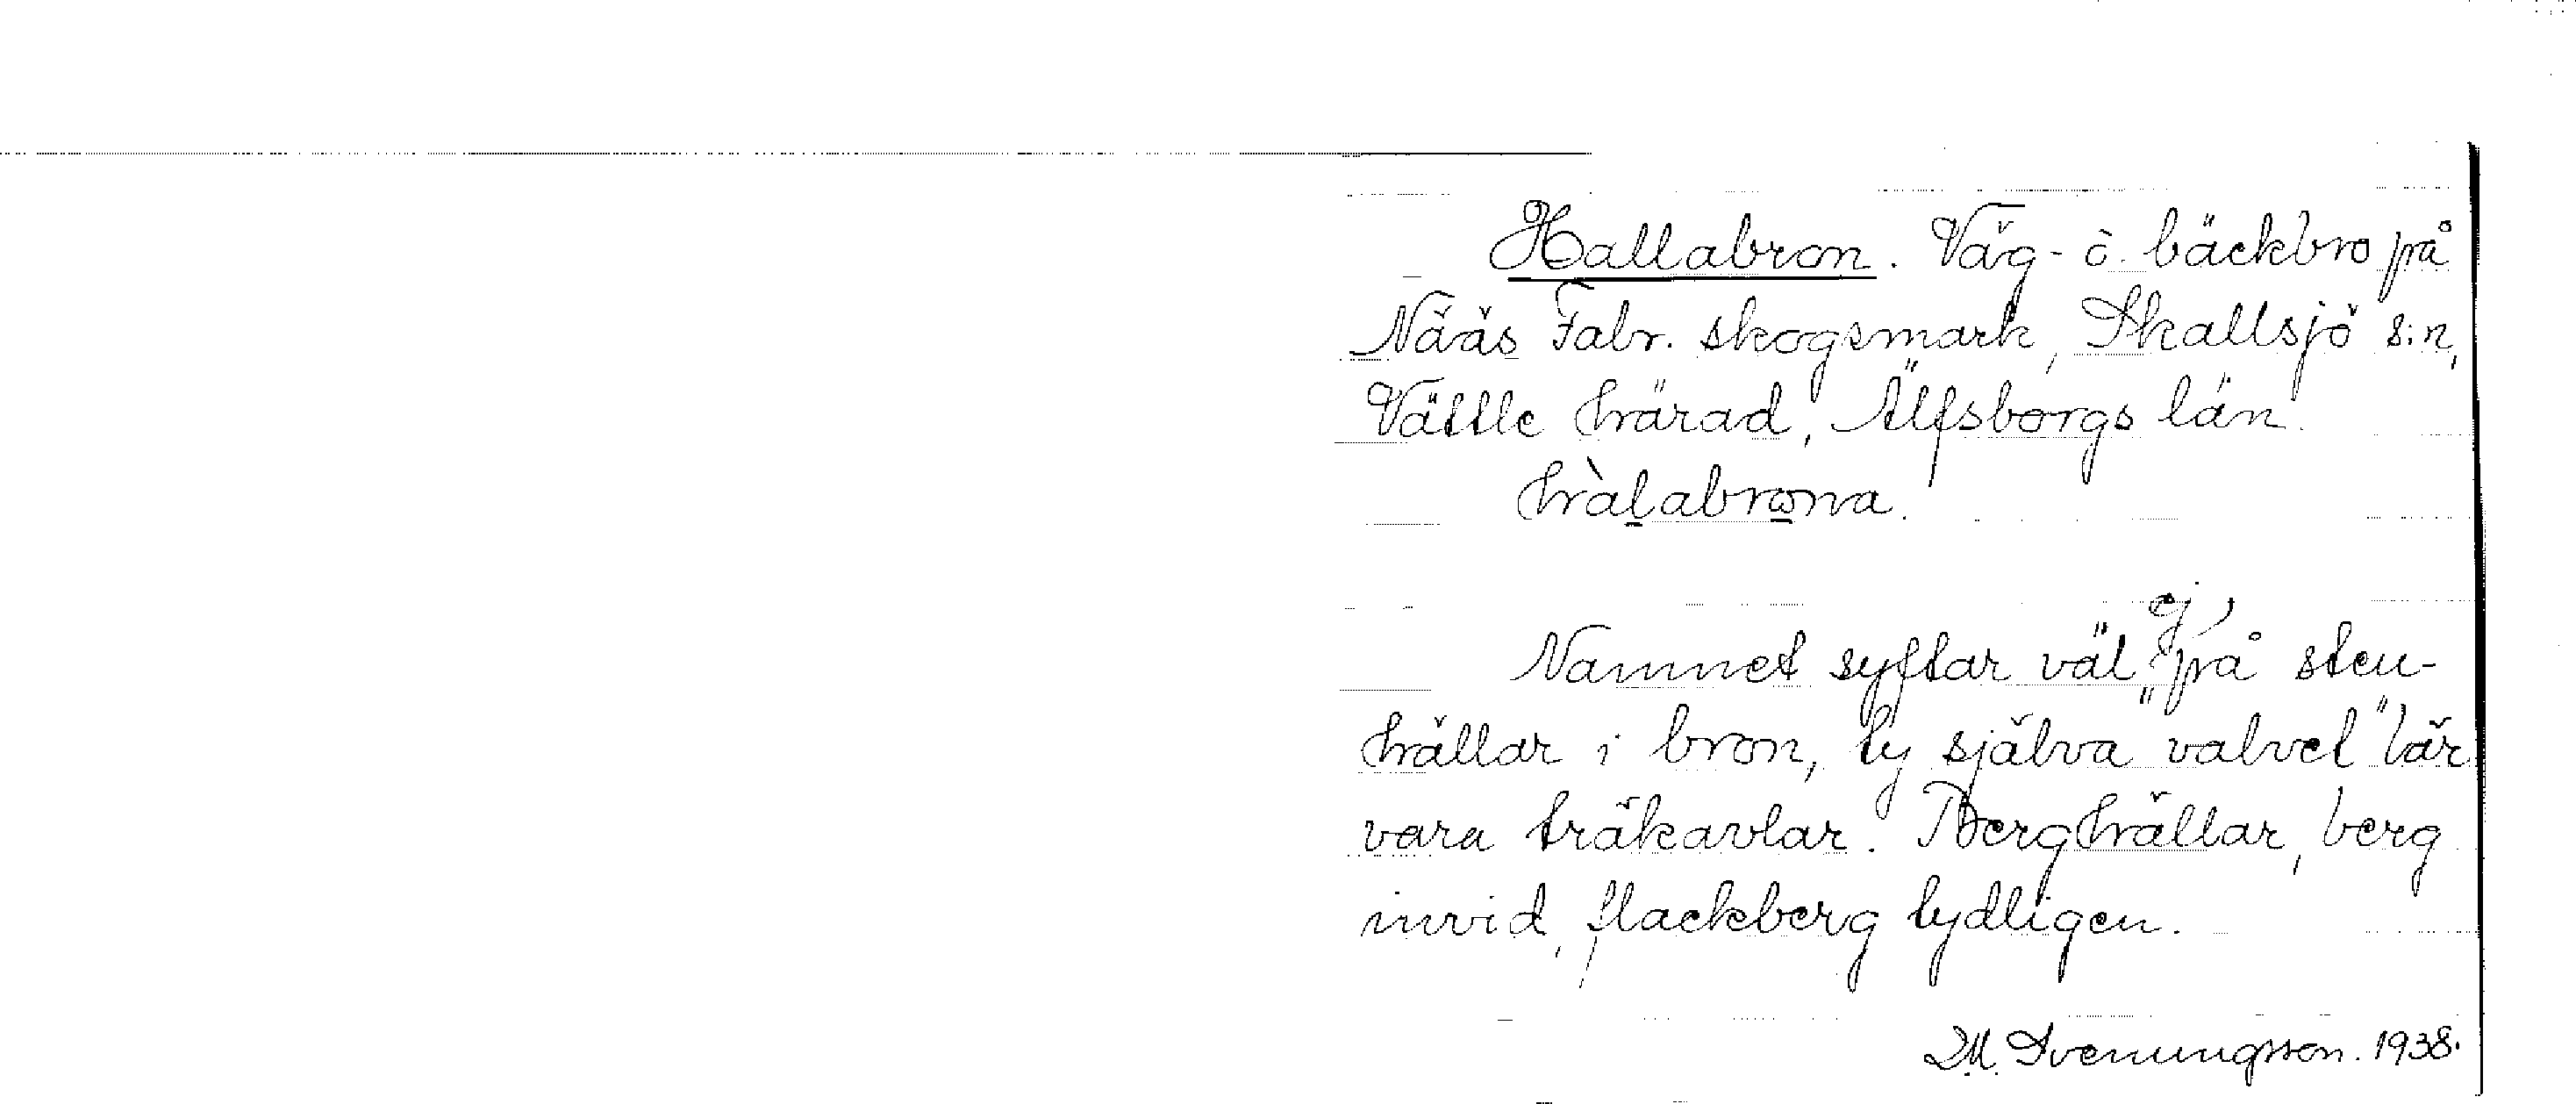 Hallabron. Väg- ò. bäckbro på
Nääs Fabr. skogsmark, Skallsjö s:n,
Vättle härad, Älfsborgs län.
hàlabrona.
Namnet syftar väl ej på sten-
hällar i bron, ty själva valvet "lär
vara träkavlar". Berghällar, berg
invid, flackberg tydligen.
D.M. Svenungsson. 1938.